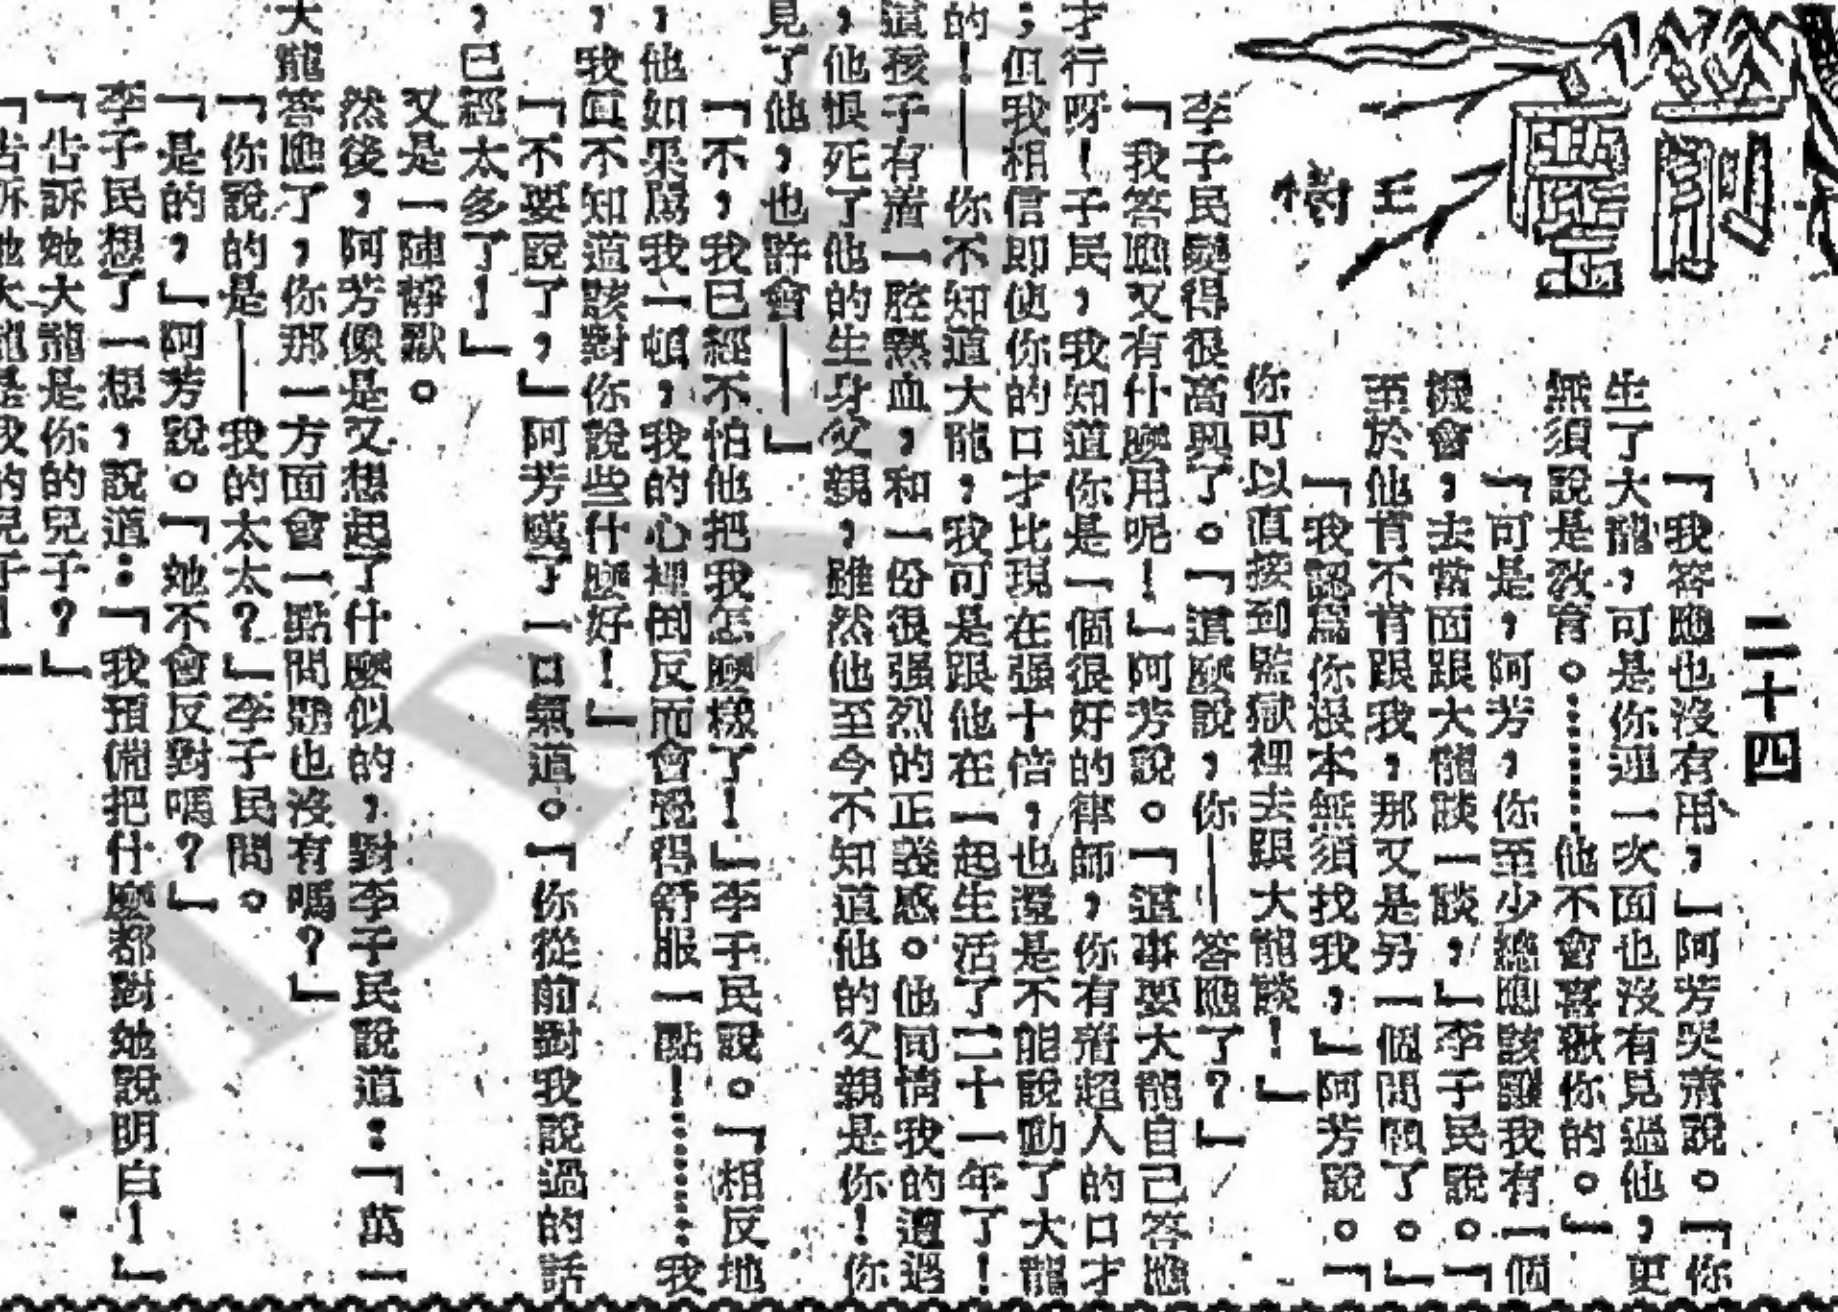 二十四
「我答應也沒有用，」阿芳哭着說。「你
生了大龍，可是你連一次面也沒有見過他，更
無須說是教育。……他不會喜歡你的。」
「可是，阿芳，你至少總應該讓我有一個
機會，去當面跟大龍談一談，」李子民說。「
至於他肯不肯跟我，那又是另一個問題了。」
「我認爲你根本無須找我，」阿芳說。「
你可以直接到監獄裡去跟大龍談！」
李子民變得很高興了。「這麼說，你——答應了？」
「我答應又有什麼用呢！」阿芳說。「這事要大龍自己答應
才行呀！子民，我知道你是一個很好的律師，你有着超人的口才
；但我相信即使你的口才比現在强十倍，也還是不能說動了大龍
的！——你不知道大龍，我可是跟他在一起生活了二十一年了！
這孩子有着一腔熱血，和一份很强烈的正義感。他同情我的遭遇
，他恨死了他的生身父親，雖然他至今不知道他的父親是你！你
見了他，也許會——」
「不，我已經不怕他把我怎麼樣了！」李子民說。「相反地
，他如果罵我一頓，我的心裡倒反而會覺得舒服一點！……我
，我眞不知道該對你說些什麼好！」
「不要說了，」阿芳嘆了一口氣道。「你從前對我說過的話
，已經太多了！」
又是一陣靜默。
然後，阿芳像是又想起了什麼似的，對李子民說道：「萬一
大龍答應了，你那一方面會一點問題也沒有嗎？」
「你說的是——我的太太？」李子民問。
「是的，」阿芳說。「她不會反對嗎？」
李子民想了一想，說道：「我預備把什麼都對她說明白！」
「告訴她大龍是你的兒子？」
「告訴她大龍是我的兒子！」
王樹